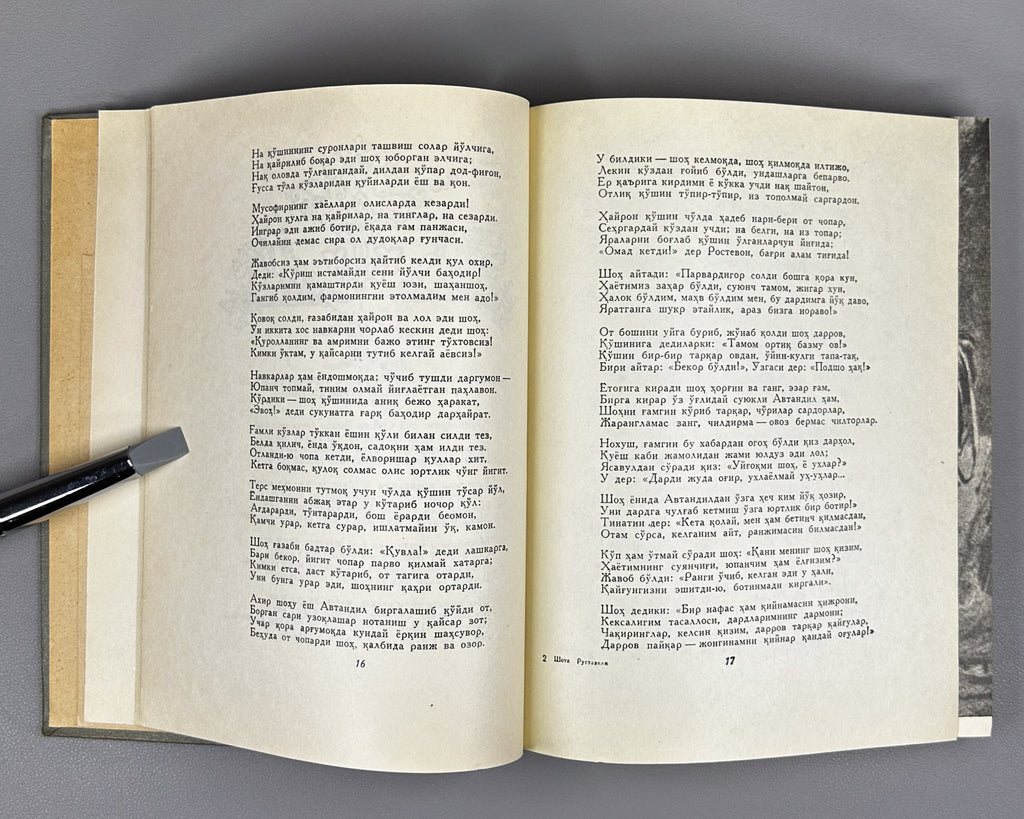 На қўшиннинг суронлари ташвиш солар йўлчига,
На қайрилиб боқар эди шоҳ юборган элчига;
Нақ оловда тўлғангандай, дилдан қўпар дод-фиғон,
Ғусса тўла кўзларидан қуйиларди ёш ва қон.
Мусофирнинг хаёллари олисларда кезарди!
Ҳайрон қулга на қайрилар, на тинглар, на сезарди.
Инграр эди ажиб ботир, ёқада ғам панжаси,
Очилайин демас сира ол дудоқлар ғунчаси.
Жавобсиз ҳам эътиборсиз қайтиб келди қул охир,
Деди: «Кўриш истамайди сени йўлчи баҳодир!
Кўзларимни қамаштирди қуёш юзи, шаҳаншоҳ,
Гангиб қолдим, фармонингни этолмадим мен адо!»
Қовоқ солди, ғазабидан ҳайрон ва лол эди шоҳ,
Ун иккита хос навкарни чорлаб кескин деди шоҳ:
«Қуролланинг ва амримни бажо этинг тўхтовсиз!
Кимки ўктам, у қайсарни тутиб келгай аёвсиз!»
Навкарлар ҳам ёндошмоқда; чўчиб тушди даргумон —
Юпанч топмай, тиним олмай йиғлаётган паҳлавон.
Кўрдики — шоҳ қўшинида аниқ бежо ҳаракат,
«Эвоҳ!» деди сукунатга ғарқ баҳодир дарҳайрат.
Ғамли кўзлар тўккан ёшин қўли билан силди тез,
Белда қилич, ёнда ўқдон, садоқни ҳам илди тез.
Отланди-ю чопа кетди, ёлворишар қуллар хит,
Кетга боқмас, қулоқ солмас олис юртлик чўнг йигит.
Терс меҳмонни тутмоқ учун чўлда қўшин тўсар йўл,
Ёндашганни абжақ этар у кўтариб ночор қўл:
Ағдаради, тўнтарарди, бош ёрарди беомон,
Қамчи урар, кетга сурар, ишлатмайин ўқ, камон.
Шоҳ ғазаби бадтар бўлди: «Қувла!» деди лашкарга,
Бари бекор, йигит чопар парво қилмай хатарга;
Кимки етса, даст кўтариб, от тагига отарди,
Уни бунга урар эди, шоҳнинг қаҳри ортарди.
Ахир шоҳу ёш Автандил биргалашиб қўйди от,
Борган сари узоқлашар нотаниш у қайсар зот;
Учар қора арғумоқда кундай ёрқин шаҳсувор,
Беҳуда от чопарди шоҳ, қалбида ранж ва озор.
16
У билдики — шоҳ келмоқда, шоҳ қилмоқда илтижо,
Лекин кўздан ғойиб бўлди, ундашларга бепарво.
Ер қаърига кирдими ё кўкка учди нақ шайтон,
Отлиқ қўшин тўпир-тўпир, из тополмай саргардон.
Ҳайрон қўшин чўлда ҳадеб нари-бери от чопар,
Сеҳргардай кўздан учди; на белги, на из топар;
Яраларни боғлаб қўшин ўлганларчун йиғида;
«Омад кетди!» дер Ростевон, бағри алам тиғида!
Шоҳ айтади: «Парвардигор солди бошга қора кун,
Ҳаётимиз заҳар бўлди, суюнч тамом, жигар хун,
Ҳалок бўлдим, маҳв бўлдим мен, бу дардимга йўқ даво,
Яратганга шукр этайлик, араз бизга нораво!»
От бошини уйга буриб, жўнаб қолди шоҳ дарров,
Қўшинига дедиларки: «Тамом ортиқ базму ов!»
Қўшин бир-бир тарқар овдан, ўйин-кулги тапа-тақ,
Бири айтар: «Бекор бўлди!», Узгаси дер: «Подшо ҳақ!»
Ётоғига киради шоҳ ҳорғин ва ганг, эзар ғам,
Бирга кирар ўз ўғлидай суюкли Автандил ҳам,
Шоҳни ғамгин кўриб тарқар, чўрилар сардорлар,
Жарангламас занг, чилдирма — овоз бермас чилторлар.
Нохуш, ғамгин бу хабардан огоҳ бўлди қиз дарҳол,
Қуёш каби жамолидан жами юлдуз эди лол;
Ясавулдан сўради қиз: «Уйғоқми шоҳ, ё ухлар?»
У дер: «Дарди жуда оғир, ухлаёлмай уҳ-уҳлар...
Шоҳ ёнида Автандилдан ўзга ҳеч ким йўқ ҳозир,
Уни дардга чулғаб кетмиш ўзга юртлик бир ботир!»
Тинатин дер: «Кета қолай, мен ҳам бетинч қилмасдан,
Отам сўрса, келганим айт, ранжимасин билмасдан!»
Кўп ҳам ўтмай сўради шоҳ: «Қани менинг шоҳ қизим,
Ҳаётимнинг суянчиғи, юпанчим ҳам ёлғизим?»
Жавоб бўлди: «Ранги ўчиб, келган эди у ҳали,
Қайғунгизни эшитди-ю, ботинмади киргали».
Шоҳ дедики: «Бир нафас ҳам қийнамасин ҳижрони,
Кексалигим тасаллоси, дардларимнинг дармони;
Чақиринглар, келсин қизим, дарров тарқар қайғулар,
Дарров пайқар — жонгинамни қийнар қандай оғулар!»
2 Шота Руставели
17